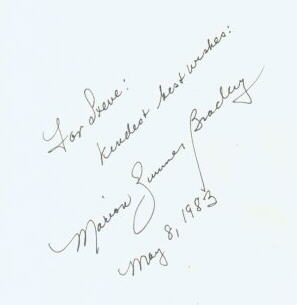 For Steve:
Kindest best wishes:
Marion Zimmer Bradley
May 8, 1983